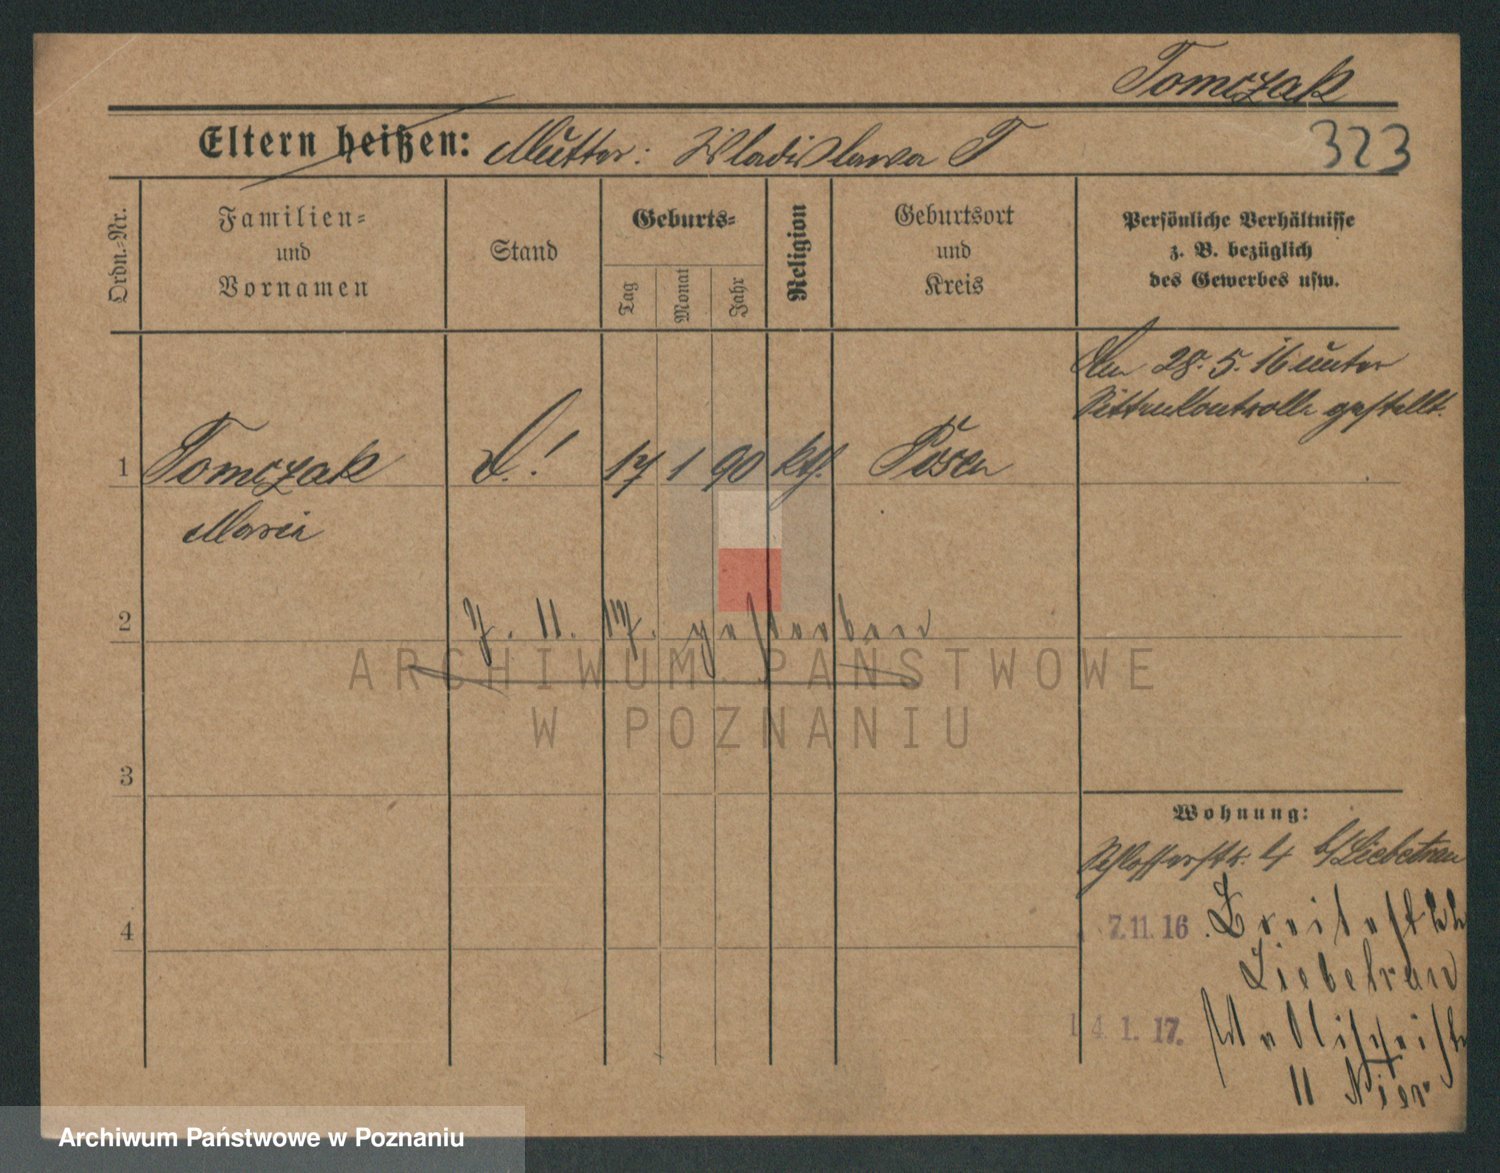 Tomczak
Eltern heißen: Mutter: Wladislawa T
323
Ordn.=Nr.
Familien=
und
Vornamen
Stand
Geburts=
Tag
Monat
Jahr
Religion
Geburtsort
und
Kreis
Persönliche Verhältnisse
z. B. bezüglich
des Gewerbes usw.
Am 28. 5. 16 unter
Sittenkontrolle gestellt.
1 Tomczak D.! 17 1 90 kth. Posen
Maria
2 7. 11. 17. gestorben
ARCHIWUM PAŃSTWOWE
W POZNANIU
3
Wohnung:
Schlosserstr. 4 b/Liebetrau
4 7.11.16. Breitestr 22
Liebetrau
14. 1. 17. Wallischei
11 Nier
Archiwum Państwowe w Poznaniu